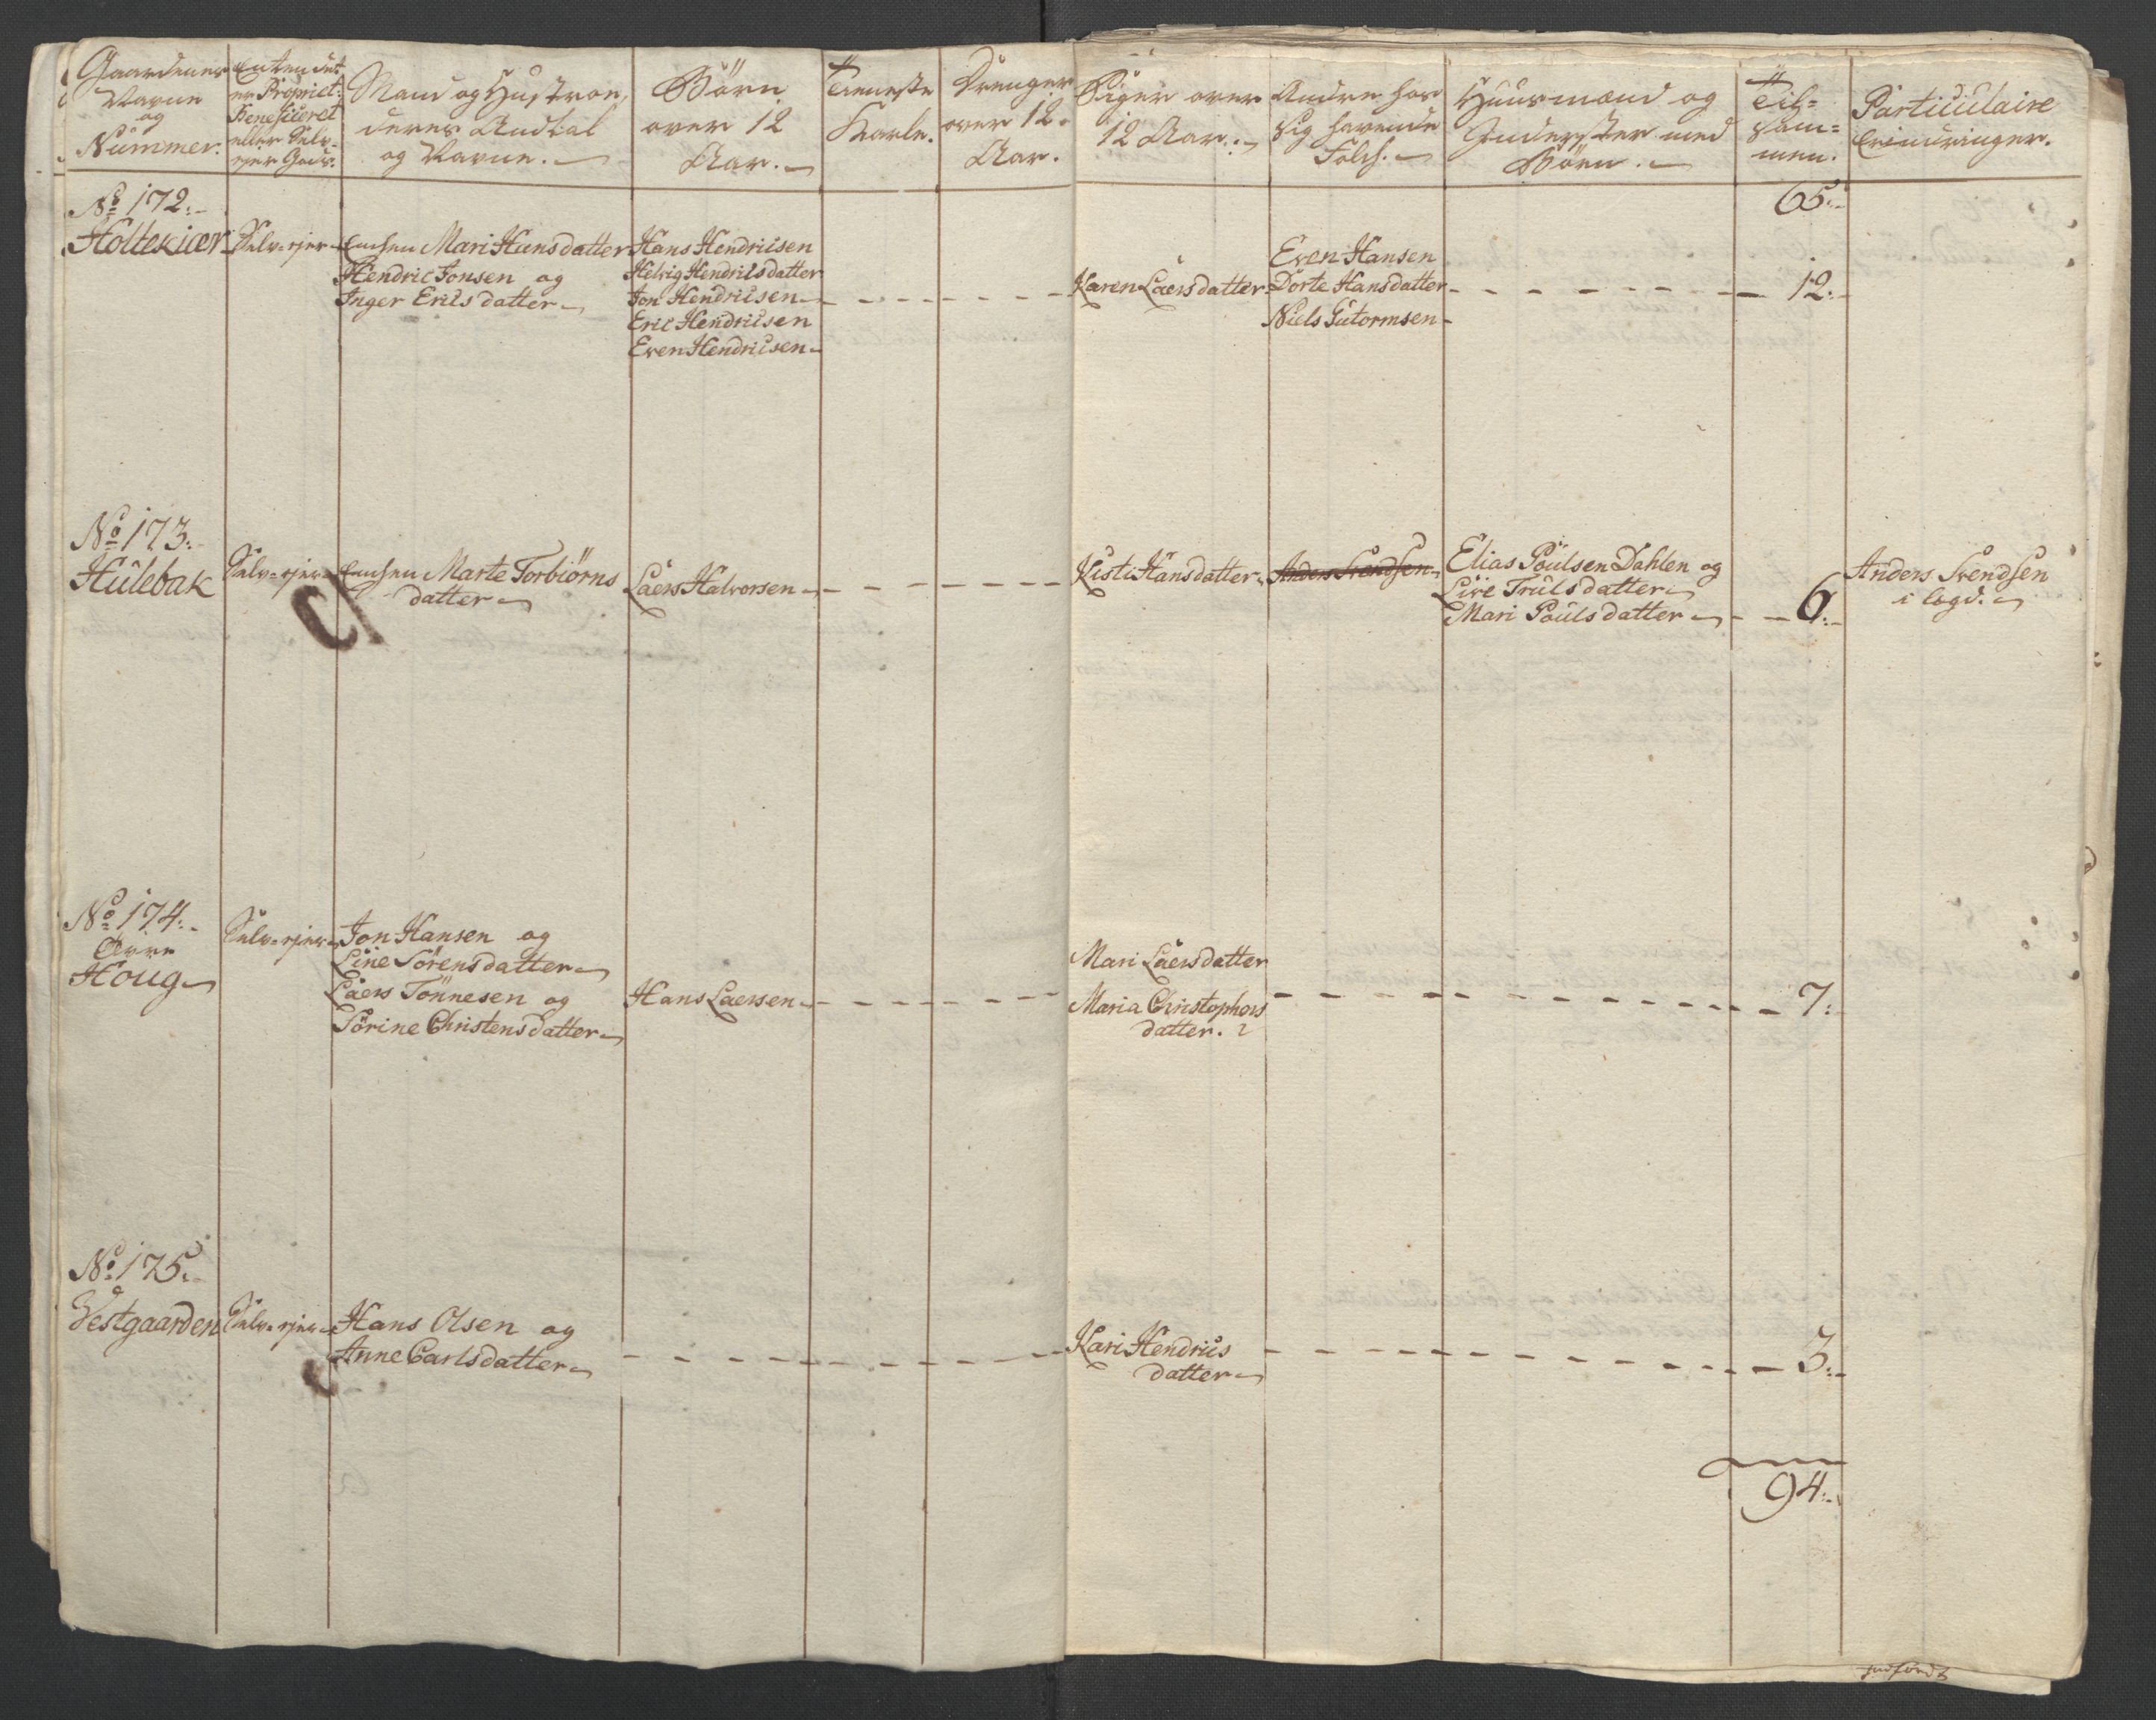 Gaardenes
Navne
og
Nummer.
Enten det
er Propriet:
Beneficeret
eller Selv-
ejer Gods.
Mand og Hustroe,
deres Andtal
og Navne.
Börn
over 12
Aar.
Tieneste
Karle.
Drenger
over 12
Aar.
Piger over
12 Aar.
Andre hos
sig havende
Folch.
Huusmænd og
Inderster med
Börn.
Til=
sam=
men.
Particulaire
Erindringer.
65:
No 172:
Holtekiær
Selv-ejer
Enchen Mari Hansdatter
Hendric Jonsen og
Inger Erics datter
Hans Hendricsen
Helvig Hendricsdatter
Jon Hendricsen
Eric Hendricsen
Even Hendricsen
Karen Laersdatter
Even Hansen
Dorte Hansdatter
Niels Gutormsen
12:
No 173:
Hulebak
Selv-ejer
Enchen Marte Torbiörns
datter
Laers Halvorsen
Kisti Hansdatter
Anders Svendsen
Elias Poulsen Dahlen og
Live Truls datter
Mari Pouls datter
6:
Anders Svendsen
i legd.
No 174:
Øvre
Houg
Selv-ejer
Jon Hansen og
Line Sörens datter
Laers Tönnesen og
Sörine Christens datter
Hans Laersen
Mari Laersdatter
Maria Christophers
datter. 2
7:
No 175:
Vestgaarden
Selv-ejer
Hans Olsen og
Anne Carls datter
Kari Hendrics
datter
3:
94:
indfördt